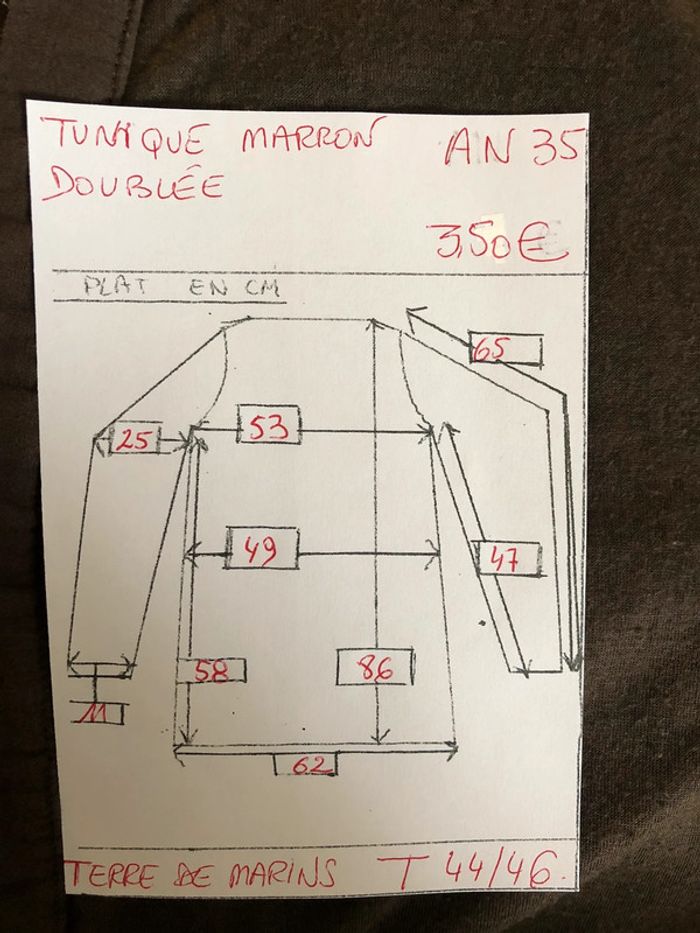 TUNIQUE MARRON AN 35
DOUBLÉE
3,50€
PLAT EN CM
65
25
53
49
47
58
86
11
62
TERRE DE MARINS T 44/46.